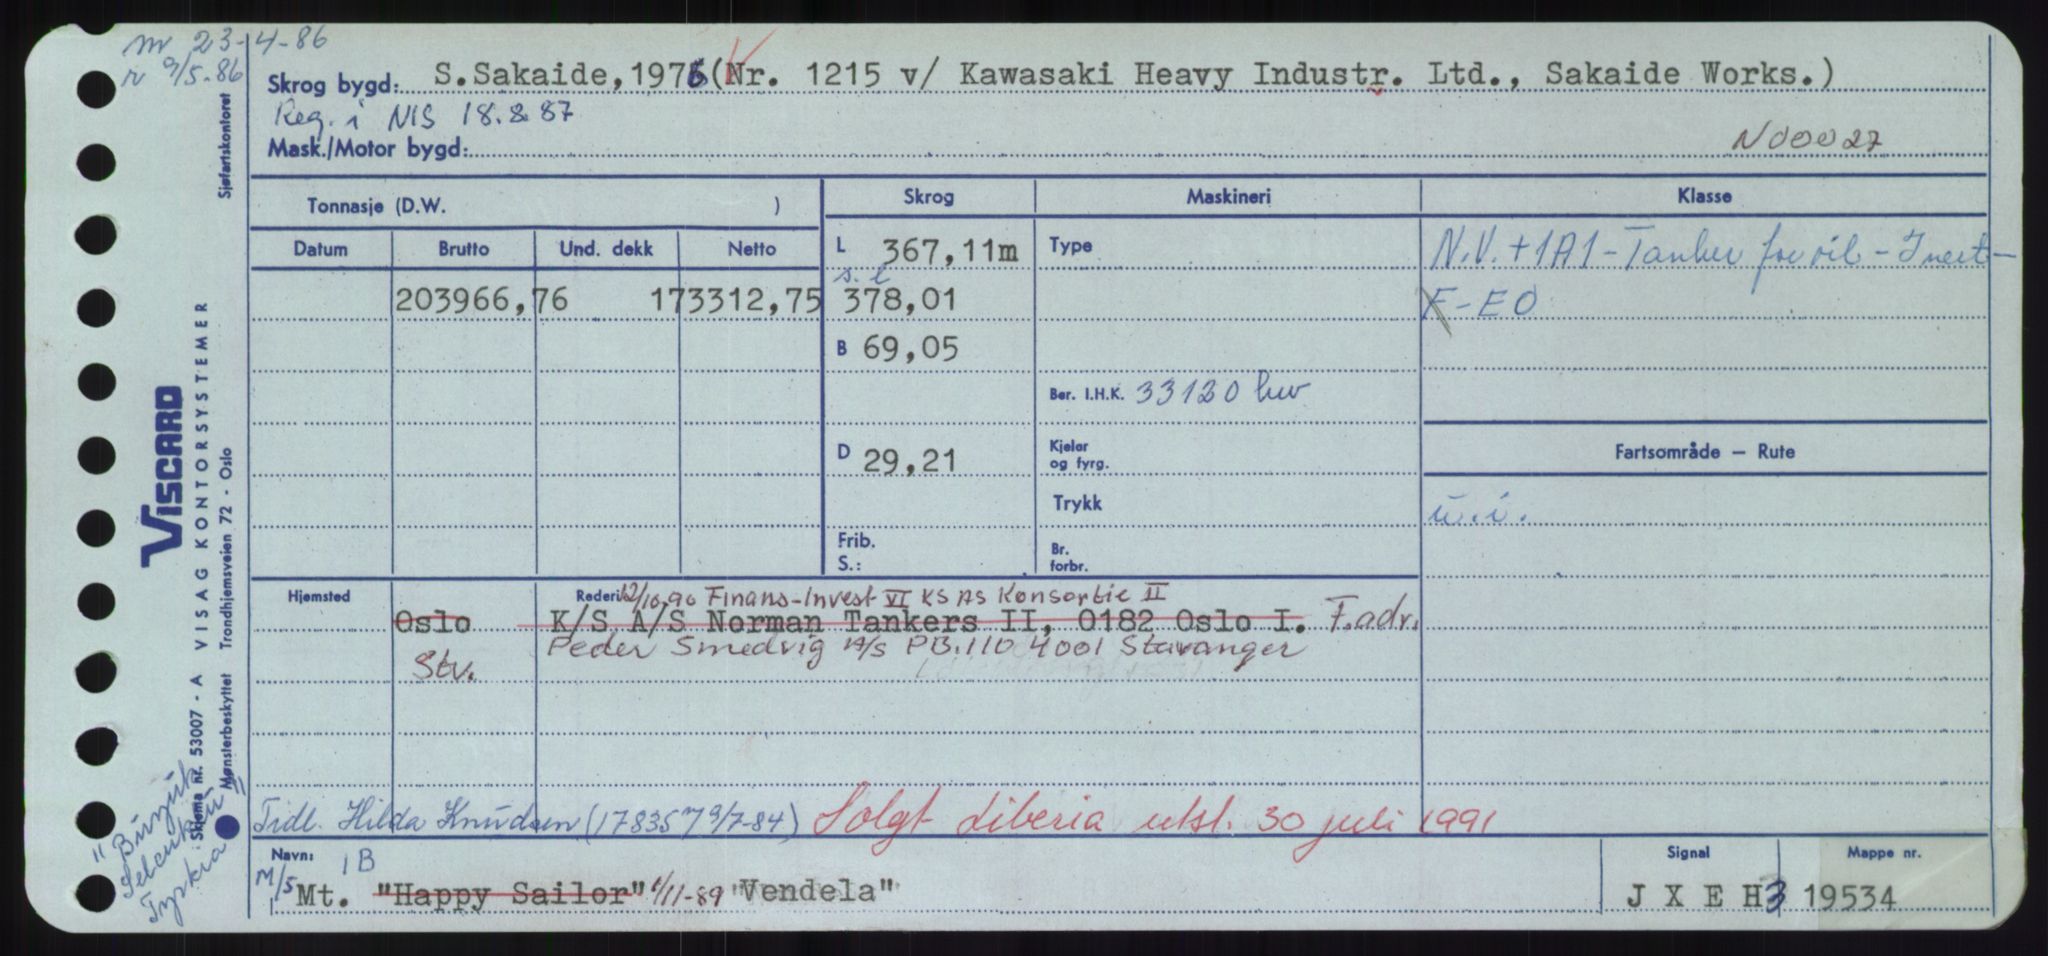 nr 23-4-86
r 9/5-86
Skrog bygd: S.Sakaide,1976(Nr. 1215 v/ Kawasaki Heavy Industr. Ltd., Sakaide Works.)
Reg. i NIS 18.8.87
Mask./Motor bygd: N00027
Tonnasje (D.W. ) Skrog Maskineri Klasse
Datum Brutto Und. dekk Netto L 367,11m Type N.V. +1A1-Tanker for oil - Inert-
203966,76 173312,75 s.l 378,01 F-EO
B 69,05
Ber. I.H.K. 33120 hw
D 29,21 Kjeler og fyrg. Fartsområde — Rute
Trykk u.i.
Frib. S.: Br. forbr.
Hjemsted Rederi 12/10.90 Finans-Invest VI KS AS Konsortie II
Oslo K/S A/S Norman Tankers II, 0182 Oslo I. F.adr.
Stv. Peder Smedvig A/S PB.110 4001 Stavanger
Tidl. Hilda Knudsen (17835 M 9/7-84) Solgt Liberia utsl. 30 juli 1991
Navn: 1B Signal Mappe nr.
M/S Mt. "Happy Sailor" 1/11-89 "Vendela" J X E H 3 19534
Sjøfartskontoret
VISCARD
VISAG KONTORSYSTEMER
Trondhjemsveien 72 - Oslo
Skjema nr. 53007 - A
Mønsterbeskyttet
"Burjuk
Selcuk
Tyrkia"